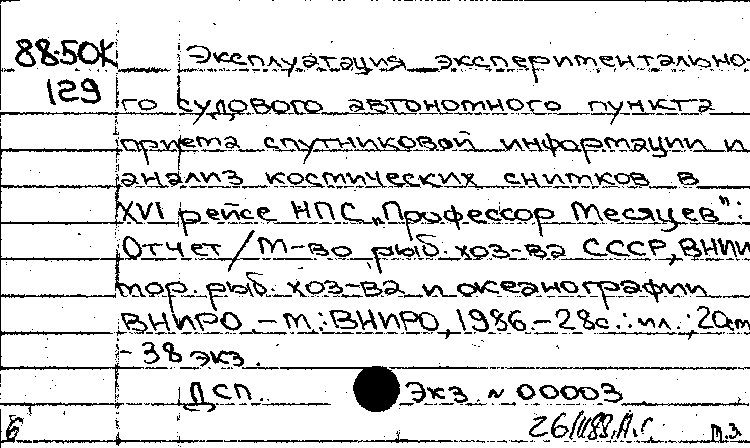 88-50К Эксплуатация экспериментально-
129 го судового автономного пункта
приема спутниковой информации и
анализ космических снимков в
XVI рейсе НПС „Профессор Месяцев":
Отчет / М-во рыб. хоз-ва СССР, ВНИИ
мор. рыб. хоз-ва и океанографии
ВНИРО. - М.: ВНИРО, 1986. - 28с.: ил.;
- 38 экз.
ДСП. Экз. № 00003
6 т.з.